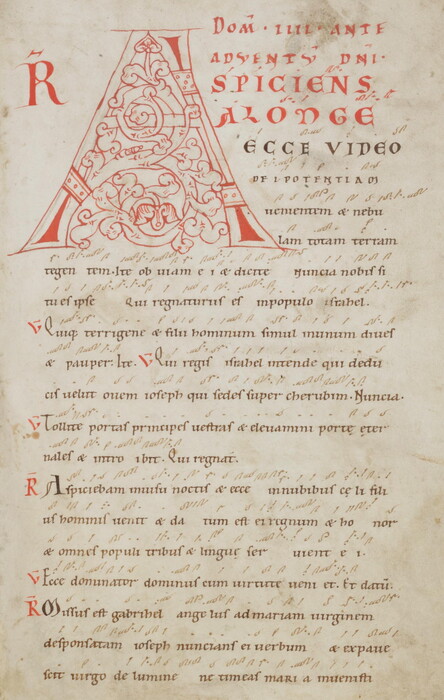 DOM̄ · IIII · ANTE
ADVENTŪ DN̄I ·
R̄ ASPICIENS
A LONGE
ECCE VIDEO
DEI · POTENTIAM
uenientem & nebu
lam totam terram
tegen tem. Ite ob uiam e i & dicite Nuncia nobis si
tu es ipse Qui regnaturus es inpopulo israhel.
V Quiq; terrigene & filii hominum simul inunum diues
& pauper. Ite. V Qui regis israhel intende qui dedu
cis uelut ouem ioseph qui sedes super cherubim. Nuncia.
V Tollite portas principes uestras & eleuamini portę eter
nales & intro ibit. Qui regnat.
R̄ Aspiciebam inuisu noctis & ecce innubibus cę li fili
us hominis uenit & da tum est ei regnum & ho nor
& omnes populi tribus & linguę ser uient e i.
V Ecce dominator dominus cum uirtute ueni et. Et datū.
R̄ Missus est gabrihel ange lus ad mariam uirginem
desponsatam ioseph nuncians ei uerbum & expaue
scit uirgo de lumine ne timeas mari a inuenisti